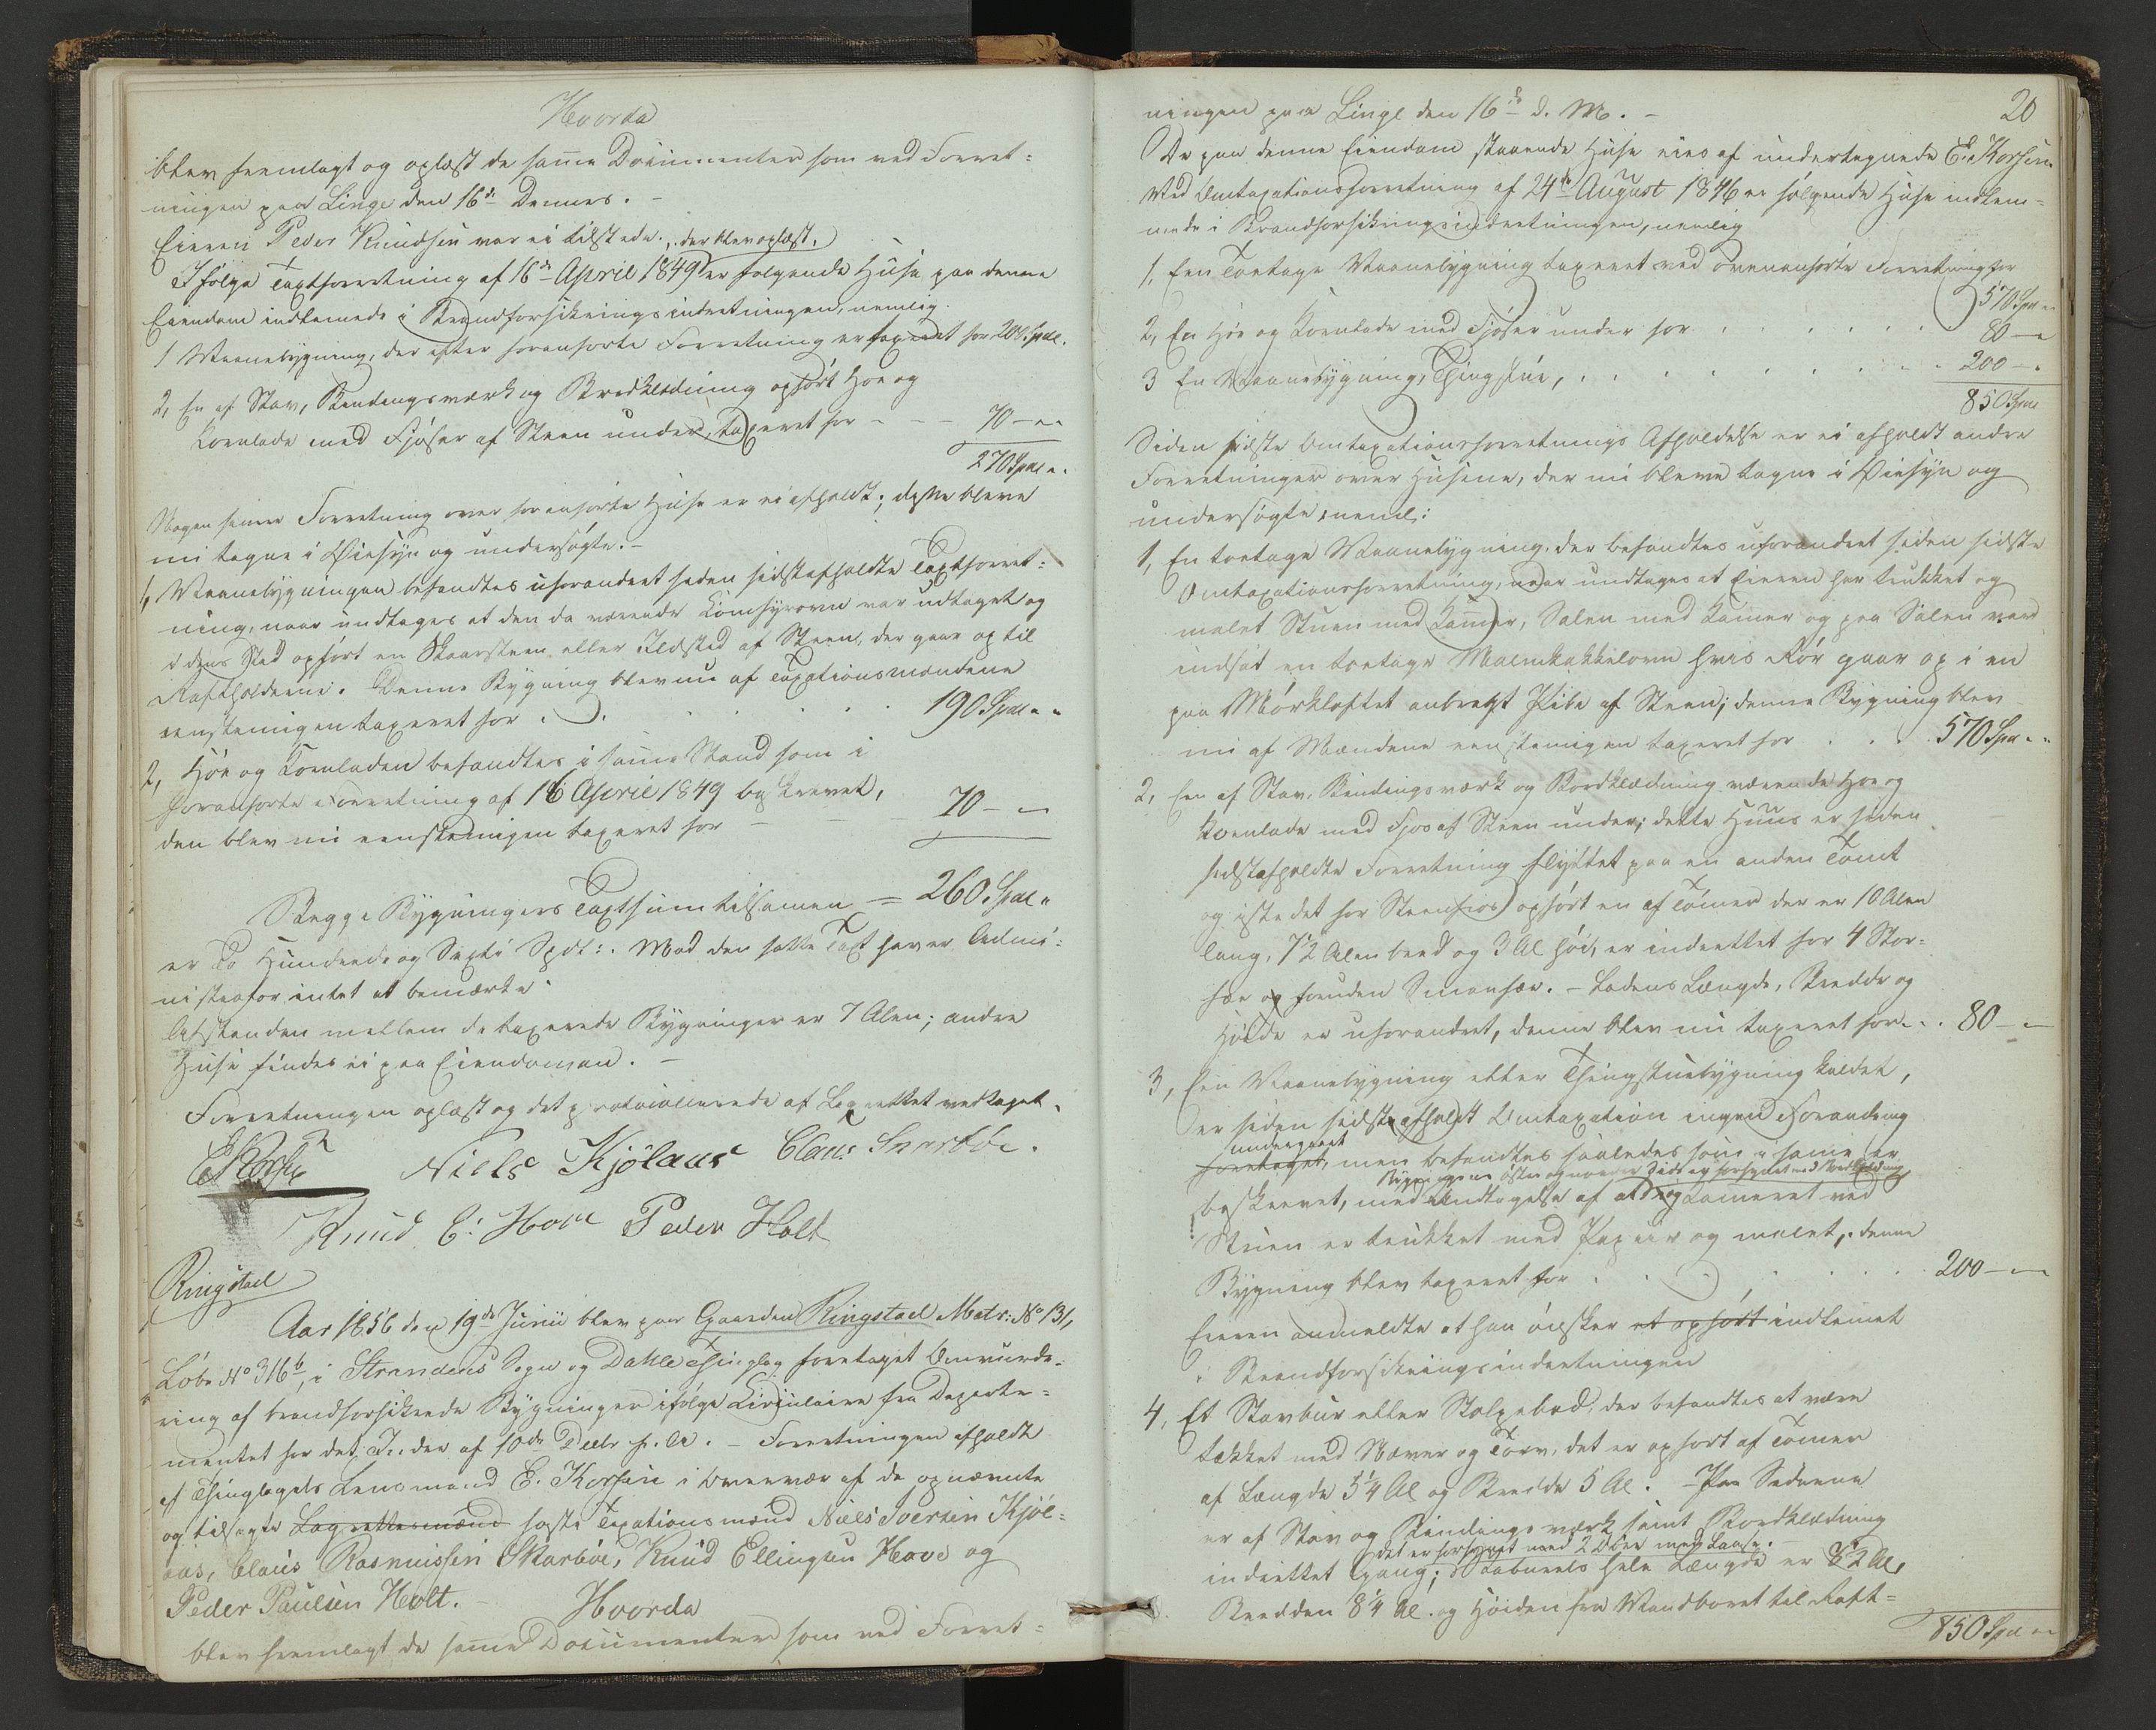 Hvorda
blev fremlagt og oplæst de samme Documenter som ved Forret-
ningen paa Linge den 16de Dennes. -
Eieren Peder Knudsen var ei tilstede. der blev oplæst,
Ifølge Taxtforretning af 16de April 1849 er følgende Huse paa denne
Eiendom indlemede i Brandforsikringsindretningen, nemlig.
1 Vaanebygning, der efter foranførte Forretning er taxeret for 200 Spdl.
2, En af Stav, Bindingsværk og Bordklædning opført Høe og
Kornlade med Fjøser af Steen under, taxeret for - - - 70 - "
270 Spdl ".
Nogen senere Forretning over foranførte Huse er ei afholdt; dette bleve
nu tagne i Øiesyn og undersøgte. -
1, Vaanebygningen befandtes uforandret siden sidstafholdte Taxtforret-
ning, naar undtages at den da værende Komfyrovn var udtaget og
i dens Sted opført en Skorsteen eller Ildsted af Steen, der gaar op til
Raftholderne. Denne Bygning blev nu af Taxationsmændene
eenstemigen taxeret for . . . . . 190 Spdl " "
2, Høe og Kornladen befandtes i samme Stand som i
foranførte Forretning af 16 April 1849 beskrevet,
den blev nu eenstemigen taxeret for - - - 70 - "
Begge Bygningers Taxtsum tilsamen = 260 Spdl "
er To Hundrede og Sexti Spdl:. Mod den satte Taxt haver Admi-
nistrator intet at bemærke.
Afstanden mellem de taxerede Bygninger er 7 Alen; andre
Huse findes ei paa Eiendommen. -
Forretningen oplæst og det protocollerede af Lagrettet vedtaget.
E Korsen Niels Kjölaas Claus Skarböe.
Knud E. Hove Peder Holt
Ringstad
Aar 1856 den 19de Junii blev paa Gaarden Ringstad Matr: No 131,
Löbe No 316b, i Strandens Sogn og Dahle Thinglag foretaget Omvurde-
ring af brandforsikrede Bygninger ifølge Circulaire fra Departe-
mentet for det Indre af 10de Decbr f. A. - Forretningen afholdt
af Thinglagets Lensmand E. Korsen i Overvær af de opnævnte
og tilsagte Lagrettesmænd faste Taxationsmænd Niels Iversen Kjöl-
aas, Claus Rasmussen Skarböe, Knud Ellingsen Hove og
Peder Paulsen Holt. -
Hvorda
blev fremlagt de samme Documenter som ved Forret-
20
ningen paa Linge den 16de d. M. -
De paa denne Eiendom staaende Huse eies af undertegnede E. Korsen
Ved Omtaxationsforretning af 24de August 1846 er følgende Huse indlem-
mede i Brandforsikringsindretningen, nemlig
1, Een Toetage Vaanebygning taxeret ved ovenanførte Forretning for
570 Spdl "
2, En Høe og Kornlade med Fjøser under for . . . . . . 80 - "
3 En Vaanebygning, Thingstue, . . . . . . . . 200 - "
850 Spdl
Siden sidste Omtaxationsforretnings Afholdelse er ei afholdt andre
Forretninger over Husene, der nu bleve tagne i Øiesyn og
undersøgte, neml:
1, En toetage Vaanebygning, der befandtes uforandret siden sidste
Omtaxationsforretning, naar undtages at Eieren har trukket og
malet Stuen med Kammer, Salen med Kamer og paa Salen var
indsat en toetage Malmkakkelovn hvis Rør gaar op i en
paa Mørkloftet anbragt Pibe af Steen; denne Bygning blev
nu af Mændene eenstemigen taxeret for . . . 570 Spdl " "
2, Een af Stav, Bindingsværk og Bordklædning værende Høe og
Kornlade med Fjøs af Steen under; dette Huus er siden
sidstafholdte Forretning flyttet paa en anden Tomt
og istedet for Steenfjøs opført en af Tømer der er 10 Alen
lang, 7½ Alen bred og 3 Al høi, er indrettet for 4 Stor-
fæe og foruden Smaafæe. - Ladens Længde, Bredde og
Høide er uforandret, denne blev nu taxeret for . . . 80 - "
3, Een Vaanebygning eller Thingstuebygning kaldet,
er siden sidst afholdt Omtaxation ingen Forandring
undergaaet
foretaget, men befandtes saaledes som i samme er
Bygningens østre og nordre Side er forsynet med Bordklædning
beskrevet, med Undtagelse af at og Kameret ved
Stuen er trukket med Papiir og malet, denne
Bygning blev taxeret for . . . . . . 200 - "
Eieren anmeldte at han ønsker at opført indlemet
i Brandforsikringsindretningen
4, Et Stavbur eller Stolpebod, der befandtes at være
tækket med Næver og Torv, det er opført af Tømer
af Længde 5¼ Al og Bredde 5 Al. Paa Siderne
er af Stav og Bindingsværk samt Bordklædning
det er forsynet med 2 Døre med Laase. -
indrettet Gang; Staburets hele Længde er Al,
Bredden 8¼ Al. og Høiden fra Vandbordet til Raft-
850 Spdl "